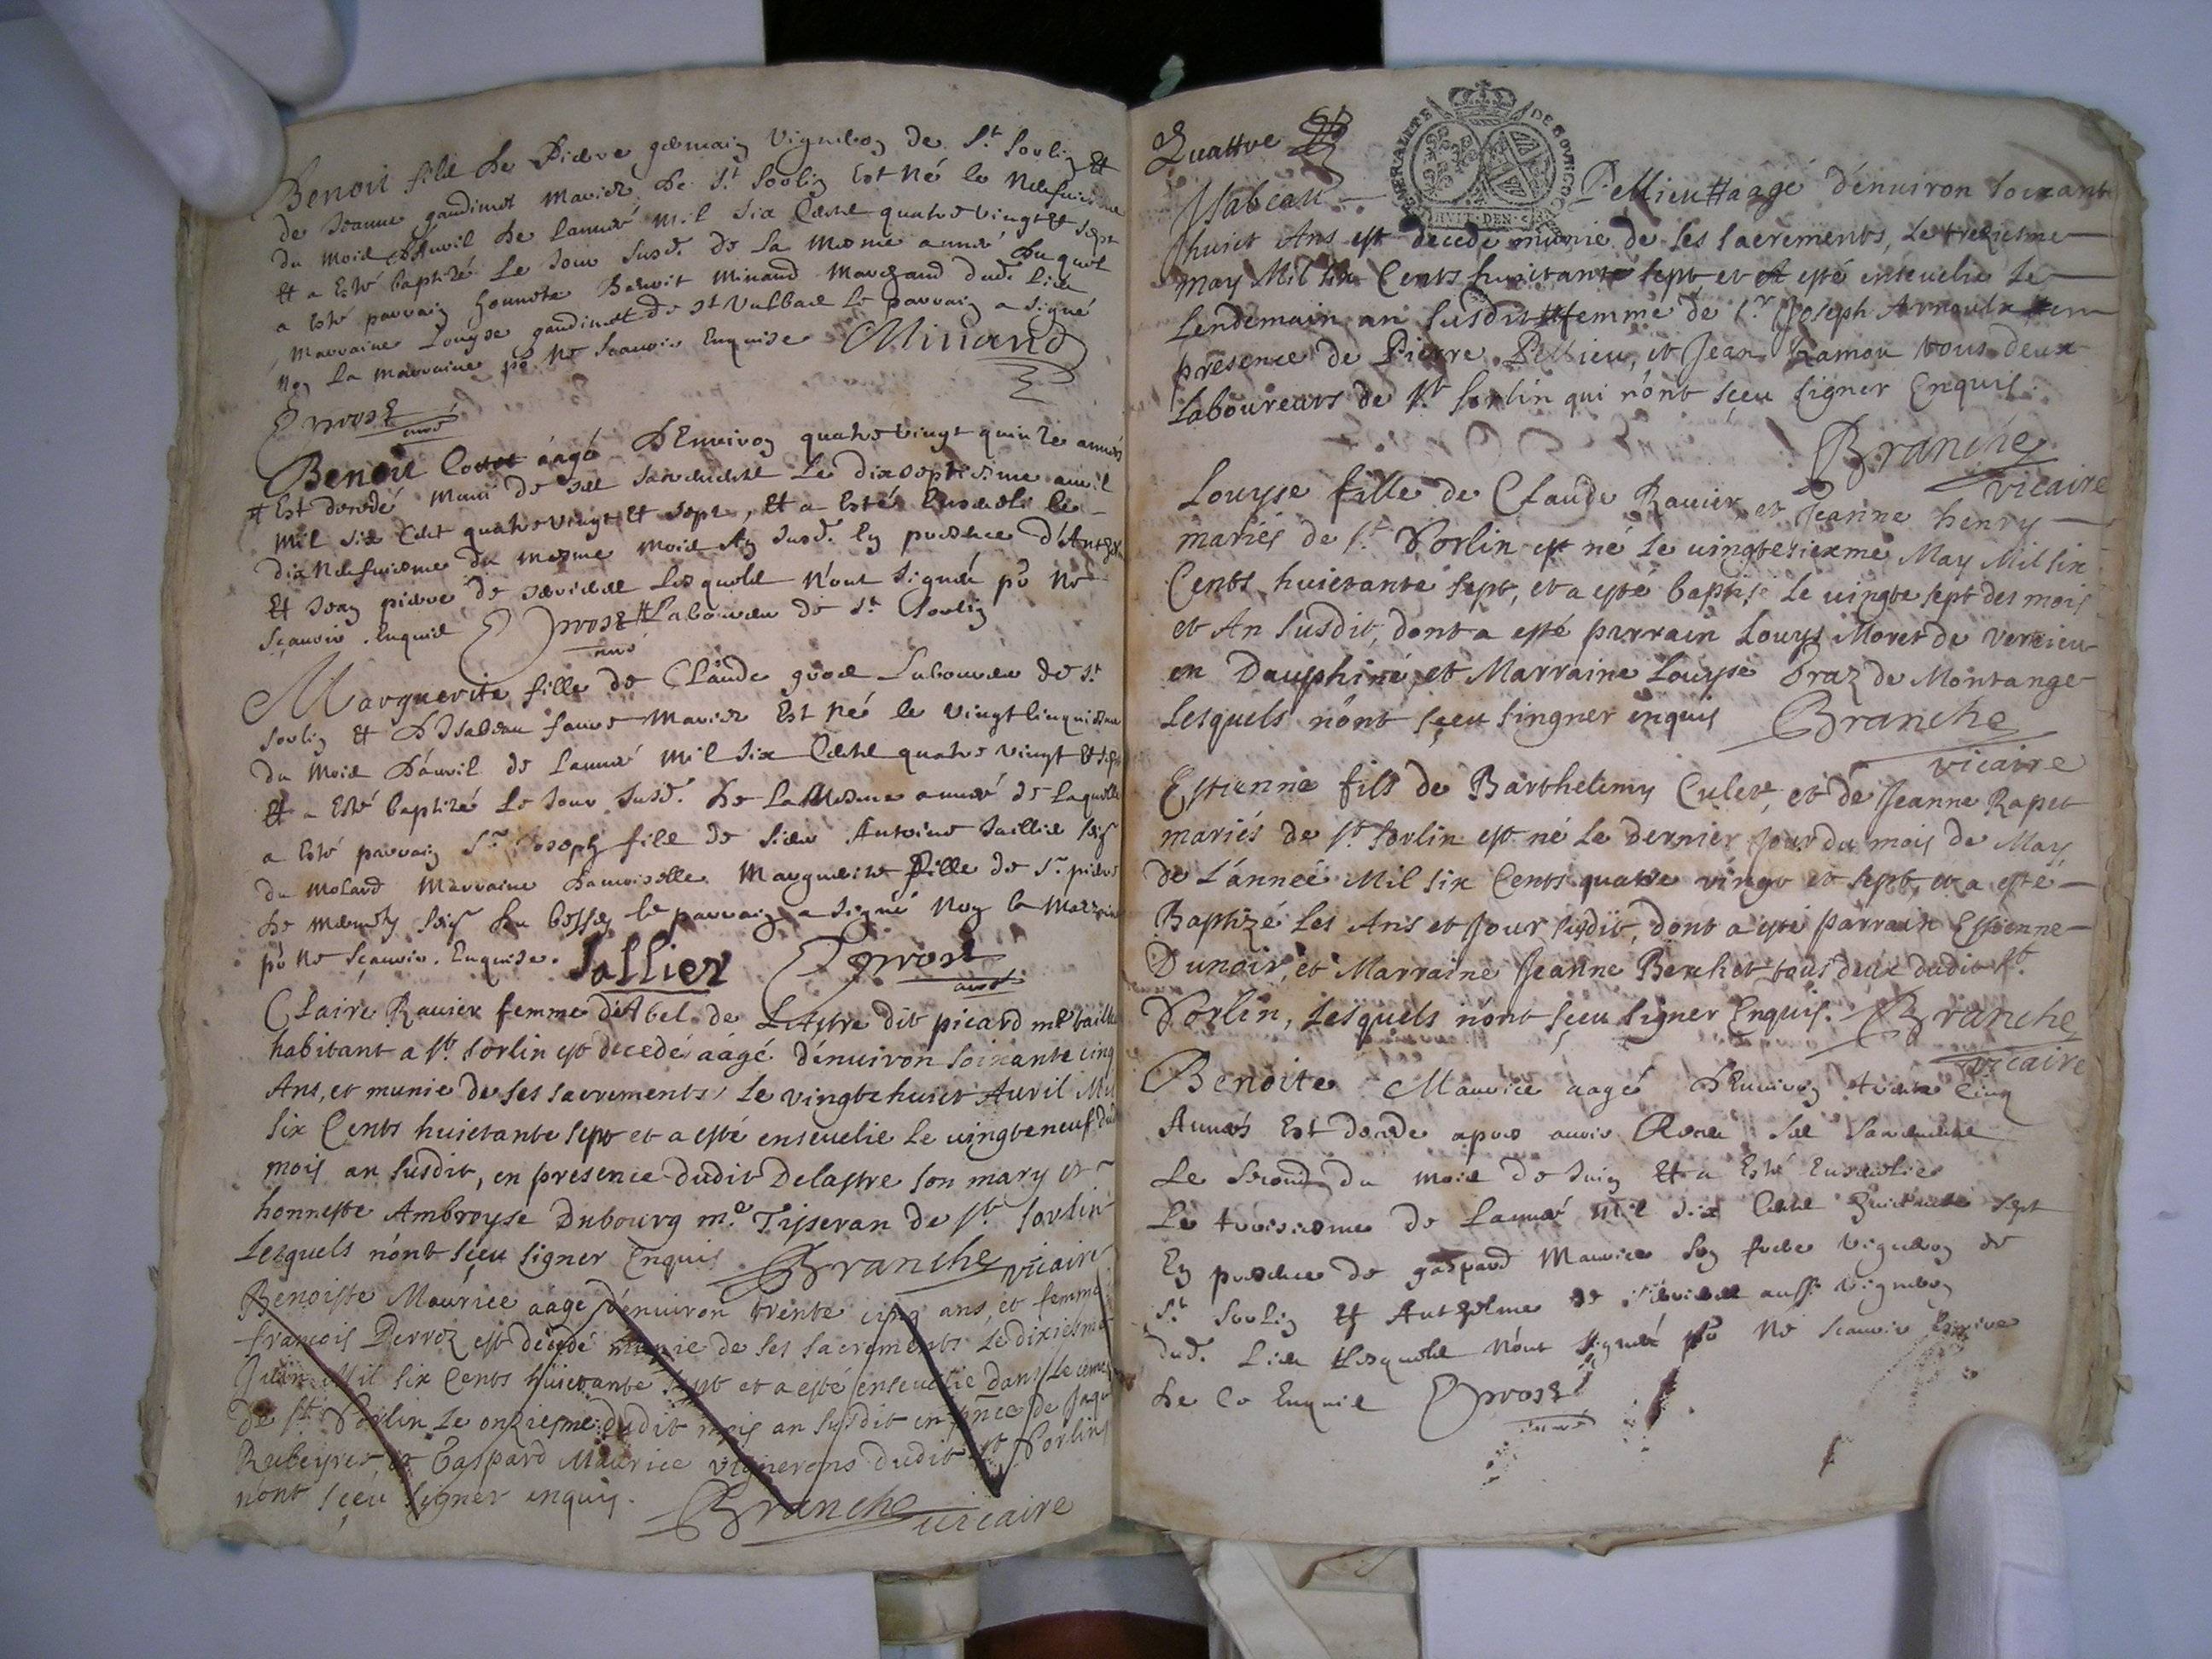 Benoit fils de Pierre germain Vigneron de St. Sorlin et
de Jeanne gaudimot Mariez de St. Sorlin Est Né le
du mois d'Auvil de Lanneé mil six Cents quatre vingt et sept
et a Esté baptizé Le Jour susd. de La mesme anneé, Duquel
a Esté parrain honneste Benoit Minand Marchand dud. Lieu
Marraine Louyse gaudimot de St Vulbad Le parrain a signé
Non La marraine po. Ne scauoir Enquise Minand
Prost
curé
Benoit aâgé d'Enuiron quatre vingt quinze anneés
# Est decedé Muni de ses sacrements Le dixseptiesme auvil
mil six Cents quatre vingt et sept, et a Esté Enseueli le
dix Neufuiesme du mesme mois An susd. En presence d'
et Jean pierre de Lesquels N'ont signéz po Ne
Sçauoir. Enquis Prost # Laboureur de St Sorlin
curé
Marguerite fille de Claude gros Laboureur de St.
Sorlin et D'Isabeau faure Mariez Est Né le vingt cinquiesme
du Mois d'auvil de Lanneé mil six Cents quatre vingt et sept
et a Esté baptizé Le Jour susd. de La Mesme anneé de Laquelle
a Esté parrain Sr. Joseph fils de sieur Antoine Jallier
du Molard Marraine damoiselle Marguerite fille de Sr. pierre
de du le parrain a signé Non la Marraine
po Ne Sçauoir. Enquise. Jallier Prost
curé
Claire Rauier femme d'Abel de Lastre dit picard me
habitant a St. Sorlin est decedé aâgé d'enuiron soixante cinq
Ans, et munie de ses sacrements, Le vingte huict Auril Mil
Six Cents huictante sept et a esté enseuelie Le vingte neuf dud
mois an susdit, en presence dudit Delastre son mary et
honneste Ambroyse Dubourg me. Tisseran de St Sorlin
Lesquels n'ont sçeu signer Enquis Branche vicaire
Benoiste Maurice aage d'enuiron trente cinq ans, et femme
francois Perroz est decedé munie de ses sacrements Le dixiesme
Juin Mil six Cents huictante sept et a esté enseuelie dans Le
de St. Sorlin Le onziesme dudit mois an susdit en pnce de
et Gaspard Maurice vignerons dudit St Sorlin
n'ont sçeu signer enquis. Branche vicaire
Quattre
GENERALITE DE BOVRGOG
HVIT DEN
Isabeau Pellieu # aagé d'enuiron soixante
huict Ans est decedé munie de ses sacrements, Le treziesme
may Mil six Cents huictante sept, et a esté enseuelie Le
Lendemain an susdit # femme de Sr Joseph Arnoulx en
presence de Pierre Pellieu, et Jean Ramou tous deux
Laboureurs de St. Sorlin qui n'ont sçeu signer Enquis.
Branche
vicaire
Louyse fille de Claude Rauier, et Jeanne henry
mariés de St. Sorlin est né Le uingtesiexme May Mil six
Cents huictante sept, et a esté baptisé Le uingte sept des mois
et An susdit, dont a esté parrain Louys Moret de Vercieu
en Dauphiné, et Marraine Louyse Praz de Montange
Lesquels n'ont sçeu singner enquis Branche
vicaire
Estienne fils de Barthelemy Culet, et de Jeanne Rapet
mariés de St. Sorlin est né Le dernier Jour du mois de May
de L'année Mil six Cents quatre vingt et sept, et a esté
Baptizé Les Ans et Jour susdit, dont a esté parrain Estienne
Dunoir, et Marraine Jeanne Berchet tous deux dudit St.
Sorlin, Lesquels n'ont sçeu signer Enquis. Branche
vicaire
Benoite Maurice aagé d'Enuiron trente Cinq
Anneés Est decede apres auoir Receu ses sacrements
Le Second du mois de Juin et a Esté Enseuelie
Le troisiesme de Lanneé mil six Cents huictante sept
En presence de gaspard Maurice son frere vigneron de
St. Sorlin et Anthelme de aussi vigneron
dud. Lieu Lesquels N'ont signéz po Ne scauoir Escrire
de Ce Enquis Prost
curé